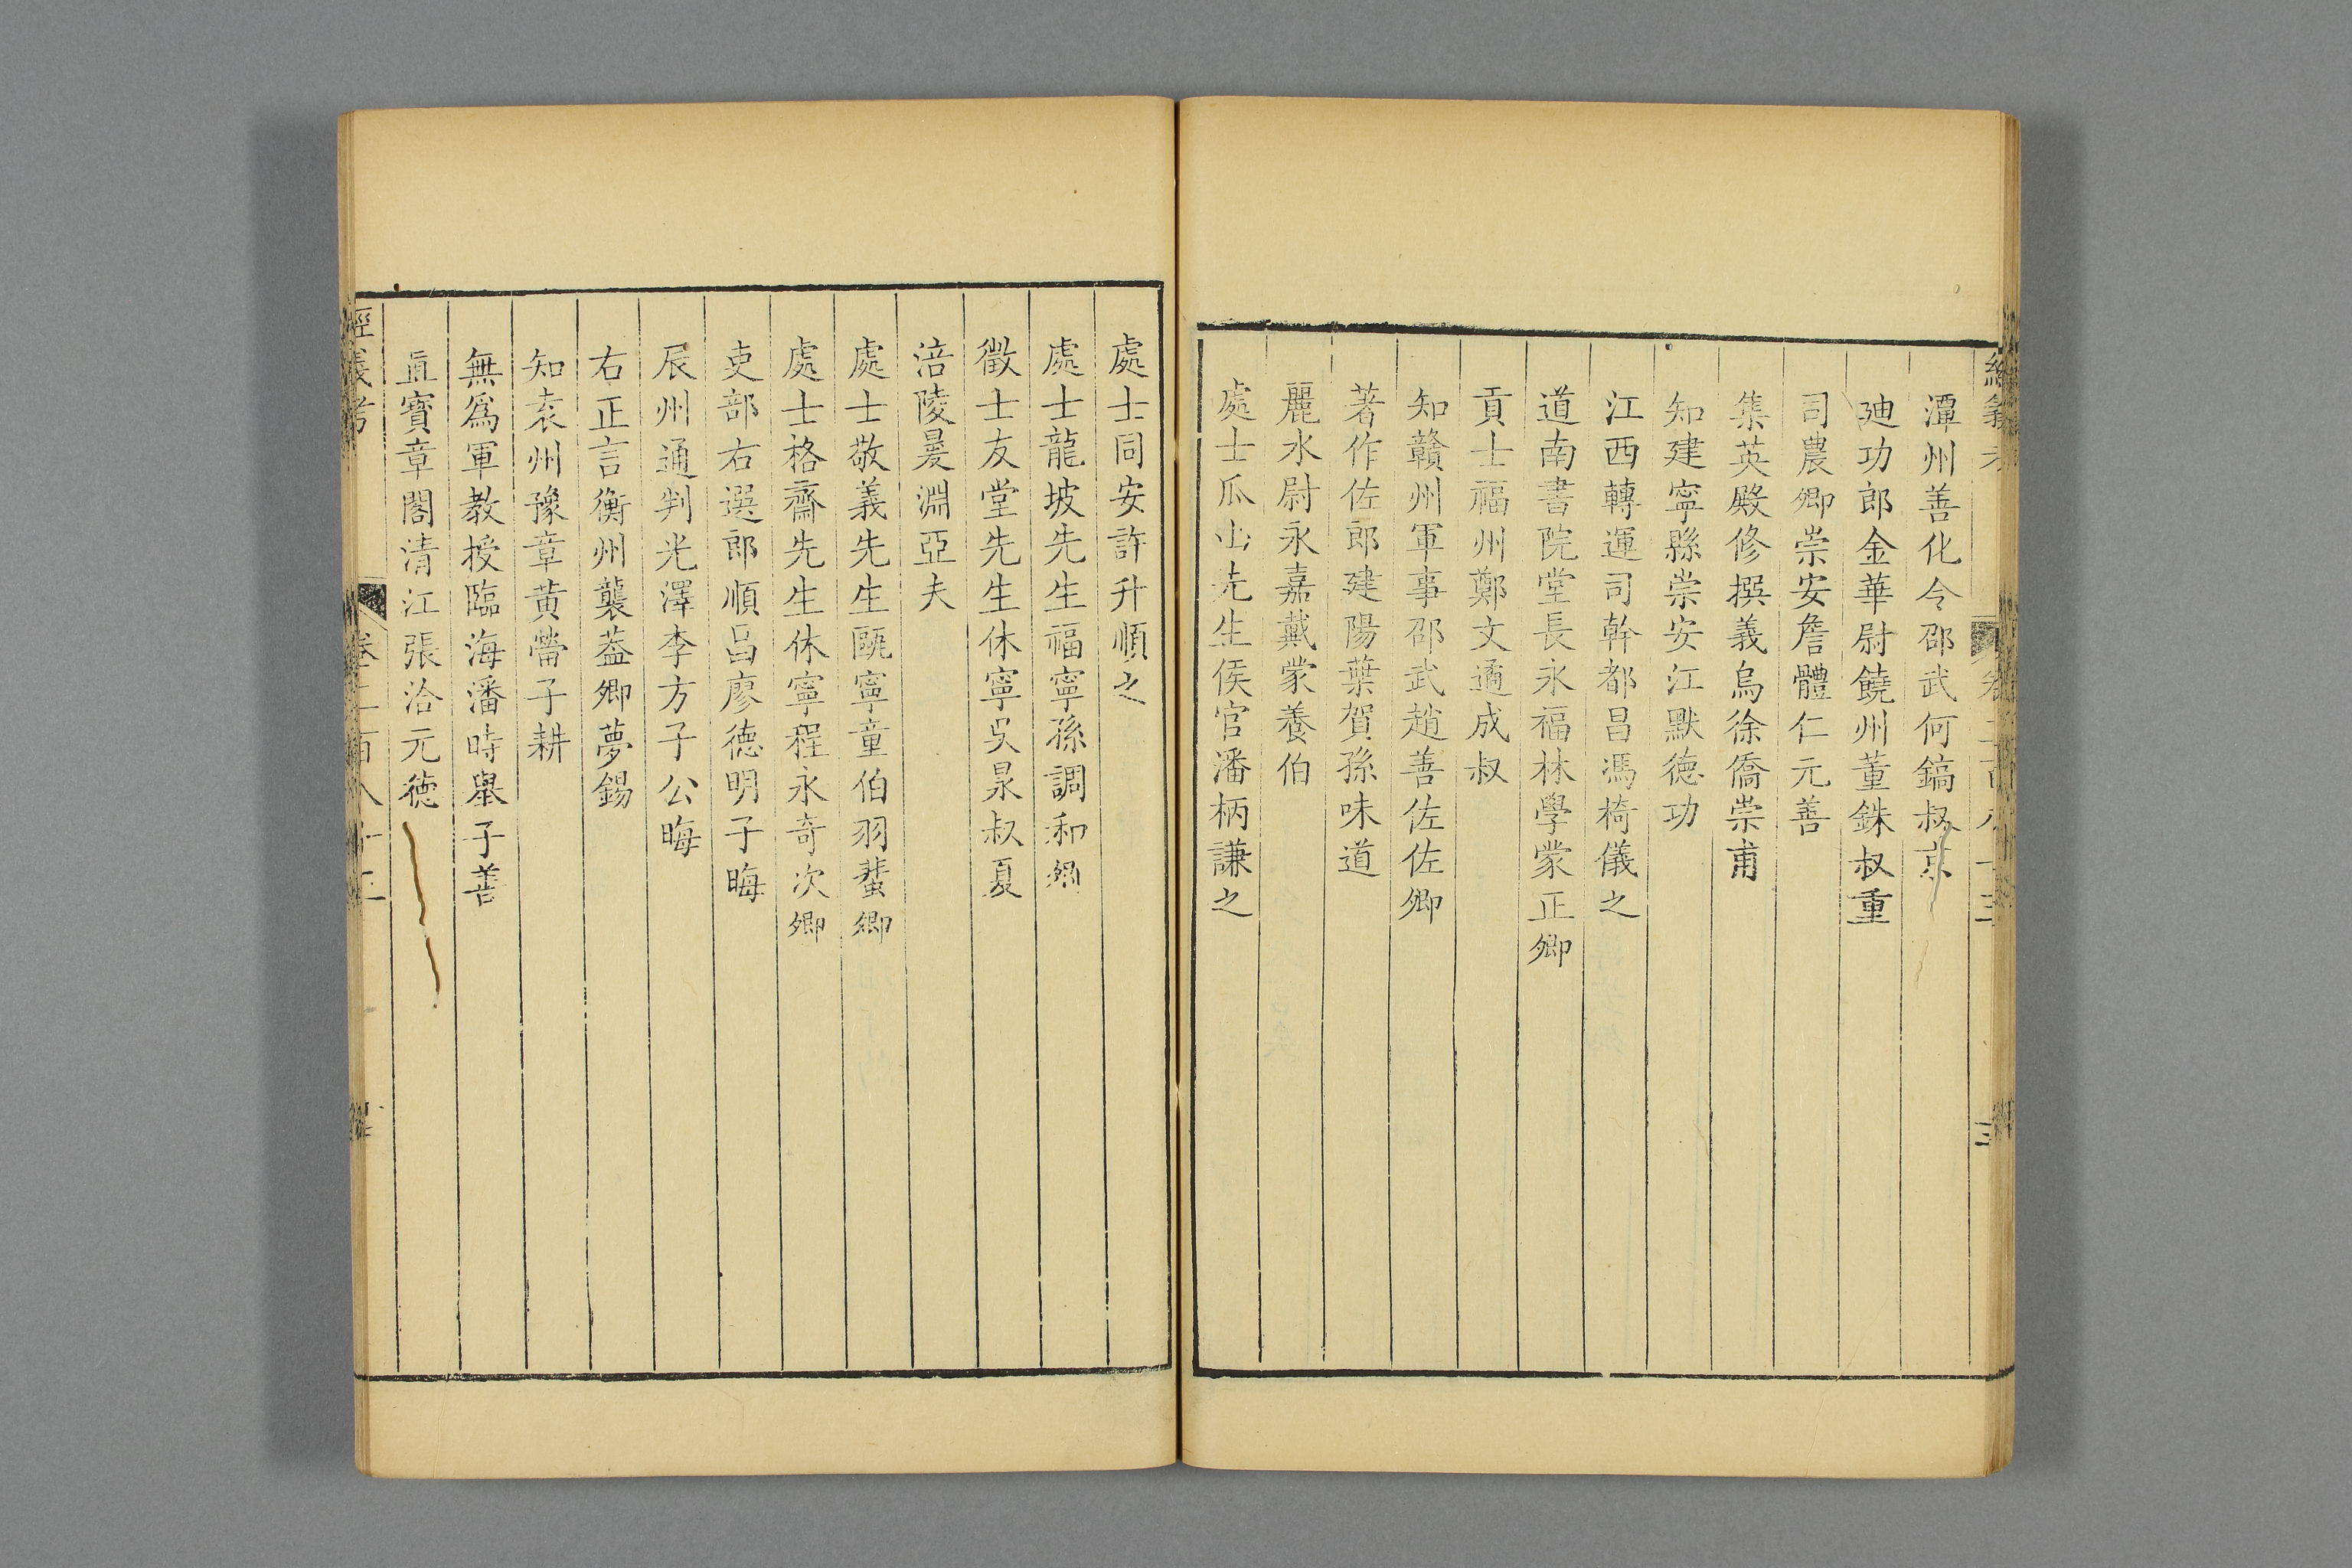 潭州善化令邵武何鎬叔京
廸功郎金華尉饒州董銖叔重
司農卿崇安詹體仁元善
集英殿修撰義烏徐僑崇甫
知建寧縣崇安江默德功
江西轉運司幹都昌馮椅儀之
道南書院堂長永福林學蒙正卿
貢士福州鄭文遹成叔
知贛州軍事邵武趙善佐佐卿
著作佐郎建陽葉賀孫味道
麗水尉永嘉戴蒙養伯
處士瓜山先生侯官潘柄謙之
處士同安許升順之
處士龍坡先生福寧孫調和卿
徵士友堂先生休寧吳泉叔夏
涪陵㬊淵亞夫
處士敬義先生甌寧童伯羽蜚卿
處士格齋先生休寧程永奇次卿
吏部右選郎順昌廖德明子晦
辰州通判光澤李方子公晦
右正言衡州襲葢卿夢錫
知袁州豫章黄㽦子耕
無爲軍教授臨海潘時舉子善
直寶章閣清江張洽元德
經義考 卷二百八十三